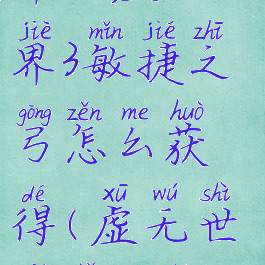 jiè mǐn jié zhī
界3敏捷之
gōng zěn me huò
弓怎么获
dé xū wú shì
得(虚无世